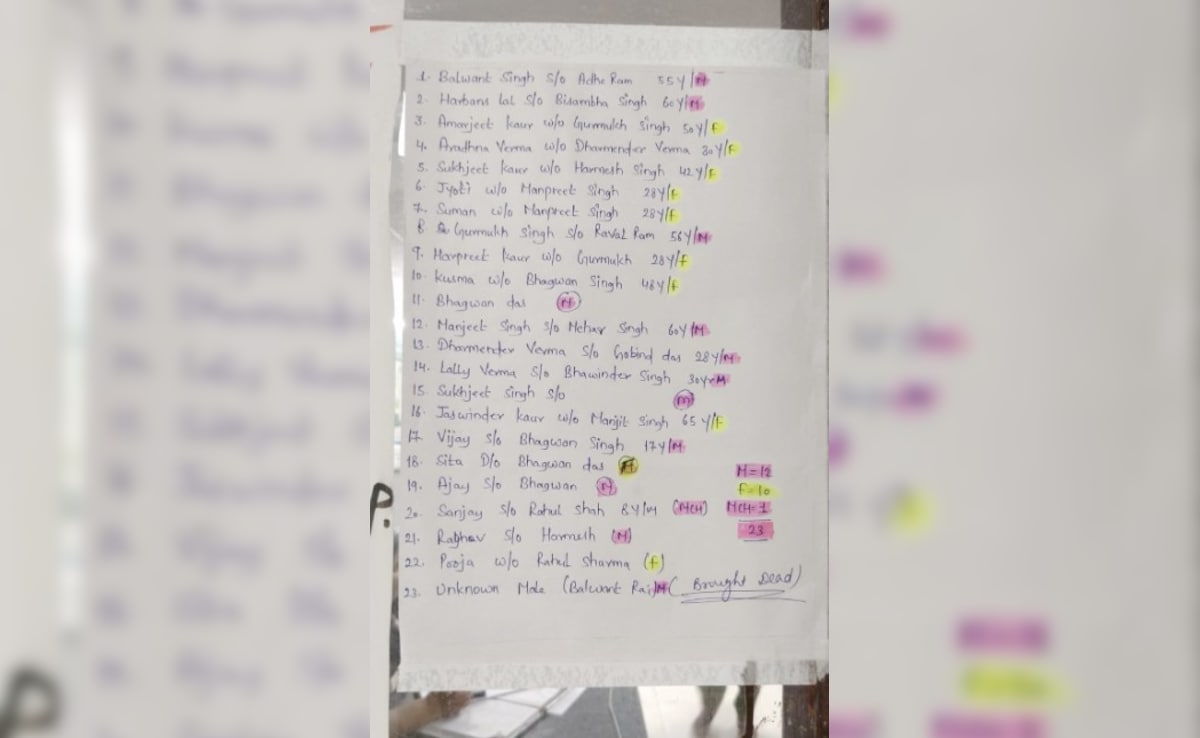 1. Balwant Singh S/o Adhe Ram 55Y/M
2. Harbans Lal S/o Bisambha Singh 60Y/M
3. Amarjeet kaur w/o Gurmukh Singh 50Y/F
4. Aradhna Verma w/o Dharmender Verma 30Y/F
5. Sukhjeet kaur w/o Harmesh Singh 42Y/F
6. Jyoti w/o Manpreet Singh 28Y/F
7. Suman w/o Manpreet Singh 28Y/F
8. Gurmukh Singh S/o Raval Ram 56Y/M
9. Harpreet kaur w/o Gurmukh 28Y/F
10. Kusma w/o Bhagwan Singh 48Y/F
11. Bhagwan das M
12. Manjeet Singh S/o Mehar Singh 60Y/M
13. Dharmender Verma S/o Gobind das 28Y/M
14. Lally Verma S/o Bhawinder Singh 30Y M
15. Sukhjeet Singh S/o M
16. Jaswinder kaur w/o Manjit Singh 65Y/F
17. Vijay S/o Bhagwan Singh 17Y/M
18. Sita D/o Bhagwan das
19. Ajay S/o Bhagwan M
20. Sanjay S/o Rahul Shah 8Y/M (MCH)
21. Raghav S/o Harmesh (M)
22. Pooja w/o Rahul Sharma (F)
23. Unknown Male (Balwant Rai) M (Brought Dead)
M=12
F=10
MCH=1
23
P.